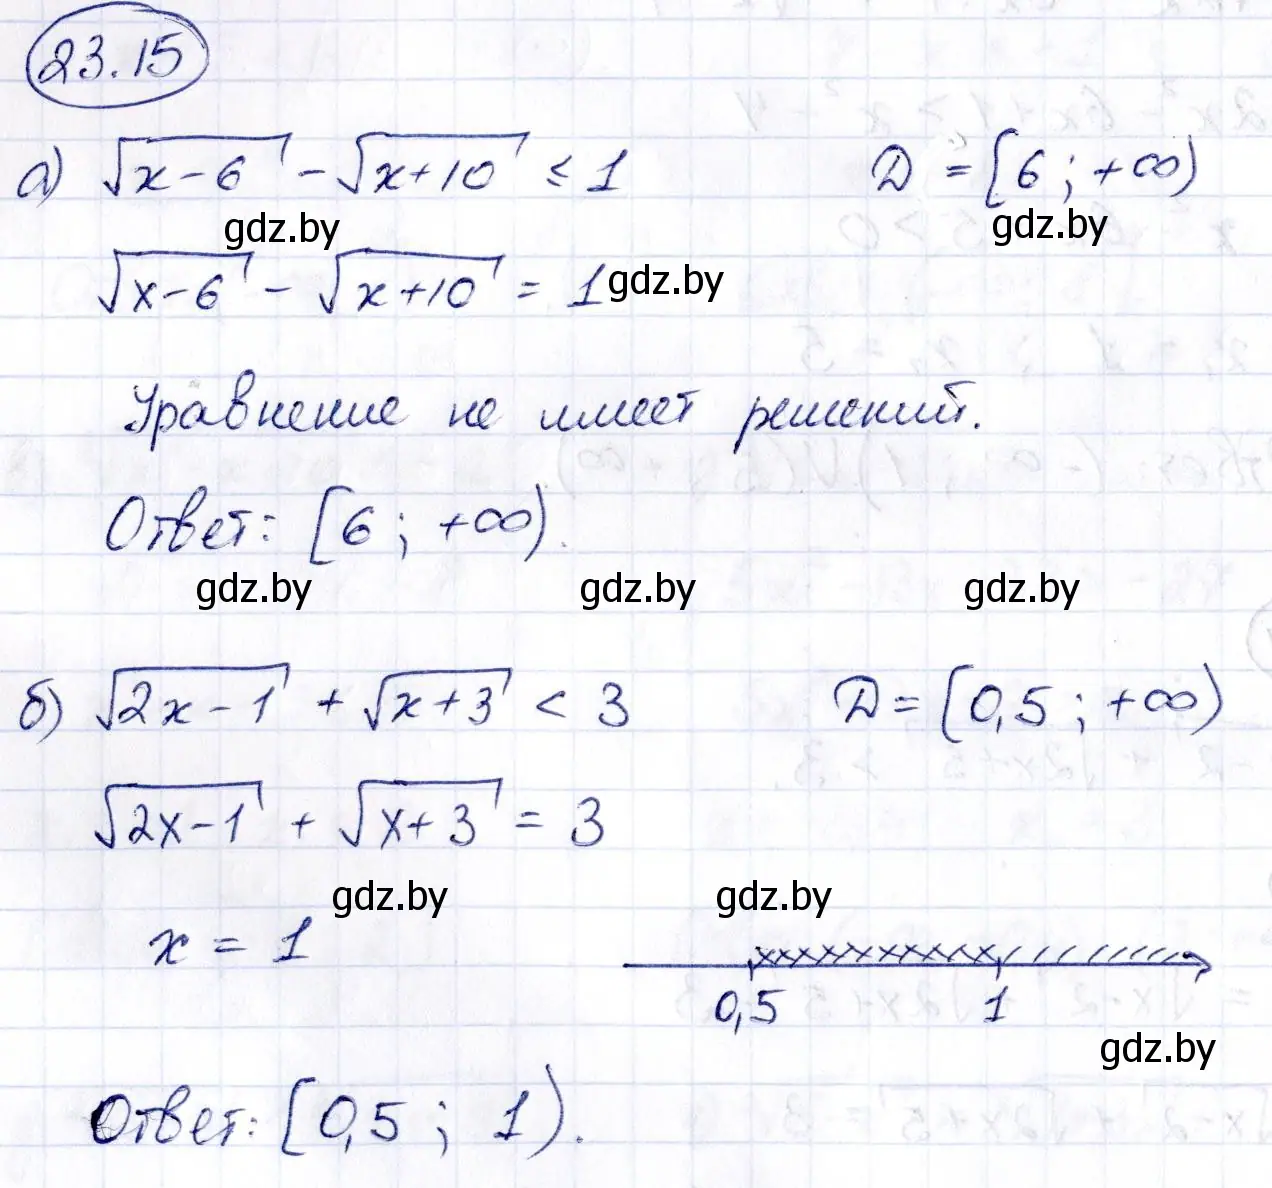 23.15
а) √(x-6) - √(x+10) ≤ 1    D = [6; +∞)
gdz.by gdz.by
√(x-6) - √(x+10) = 1 gdz.by
Уравнение не имеет решений.
Ответ: [6; +∞).
gdz.by gdz.by gdz.by
б) √(2x-1) + √(x+3) < 3    D = [0,5; +∞)
√(2x-1) + √(x+3) = 3
gdz.by gdz.by
x = 1
0,5 1
gdz.by
Ответ: [0,5; 1).